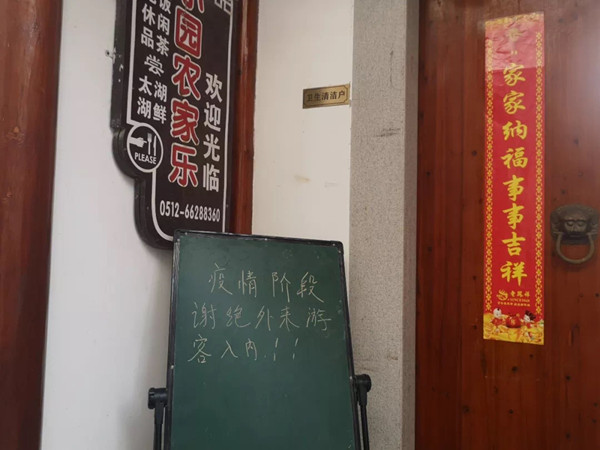 欢迎光临
园农家乐
饭
休闲
品茶
尝
太湖
湖鲜
PLEASE
0512-66288360
卫生清洁户
疫情阶段
谢绝外来游
客入内!!!
家家纳福事事吉祥